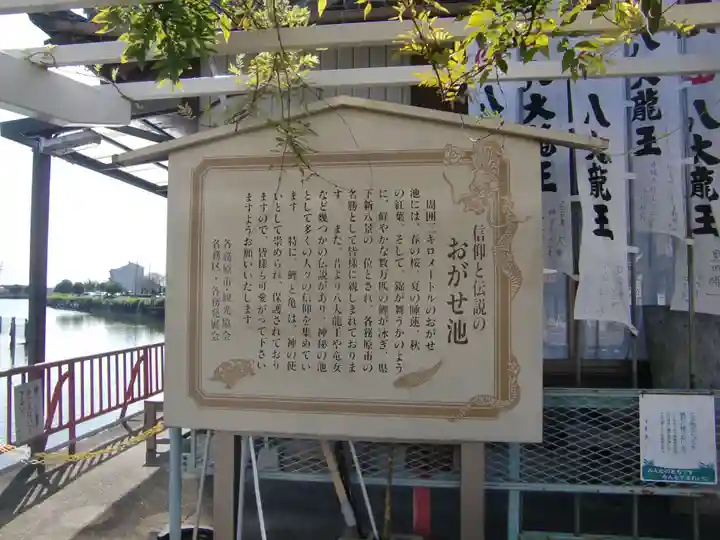 信仰と伝説の
おがせ池
周囲二キロメートルのおがせ
池には、春の桜、夏の睡蓮、秋
の紅葉、そして、錦が舞うかのよう
に、鮮やかな数万匹の鯉が泳ぎ、県
下新八景の一位とされ、各務原市の
名勝として皆様に親しまれておりま
す。また、昔より八大龍王や竜女
など幾つかの伝説があり、神秘の池
として多くの人々の信仰を集めてい
ます。特に、鯉と亀は、神の使
いとして崇められ、保護されており
ますので、皆様も可愛がって下さい
ますようお願いいたします。
各務原市・観光協会
各務区・各務発展会
八大龍王
八大龍王
八大龍王
八大龍王
八大龍王